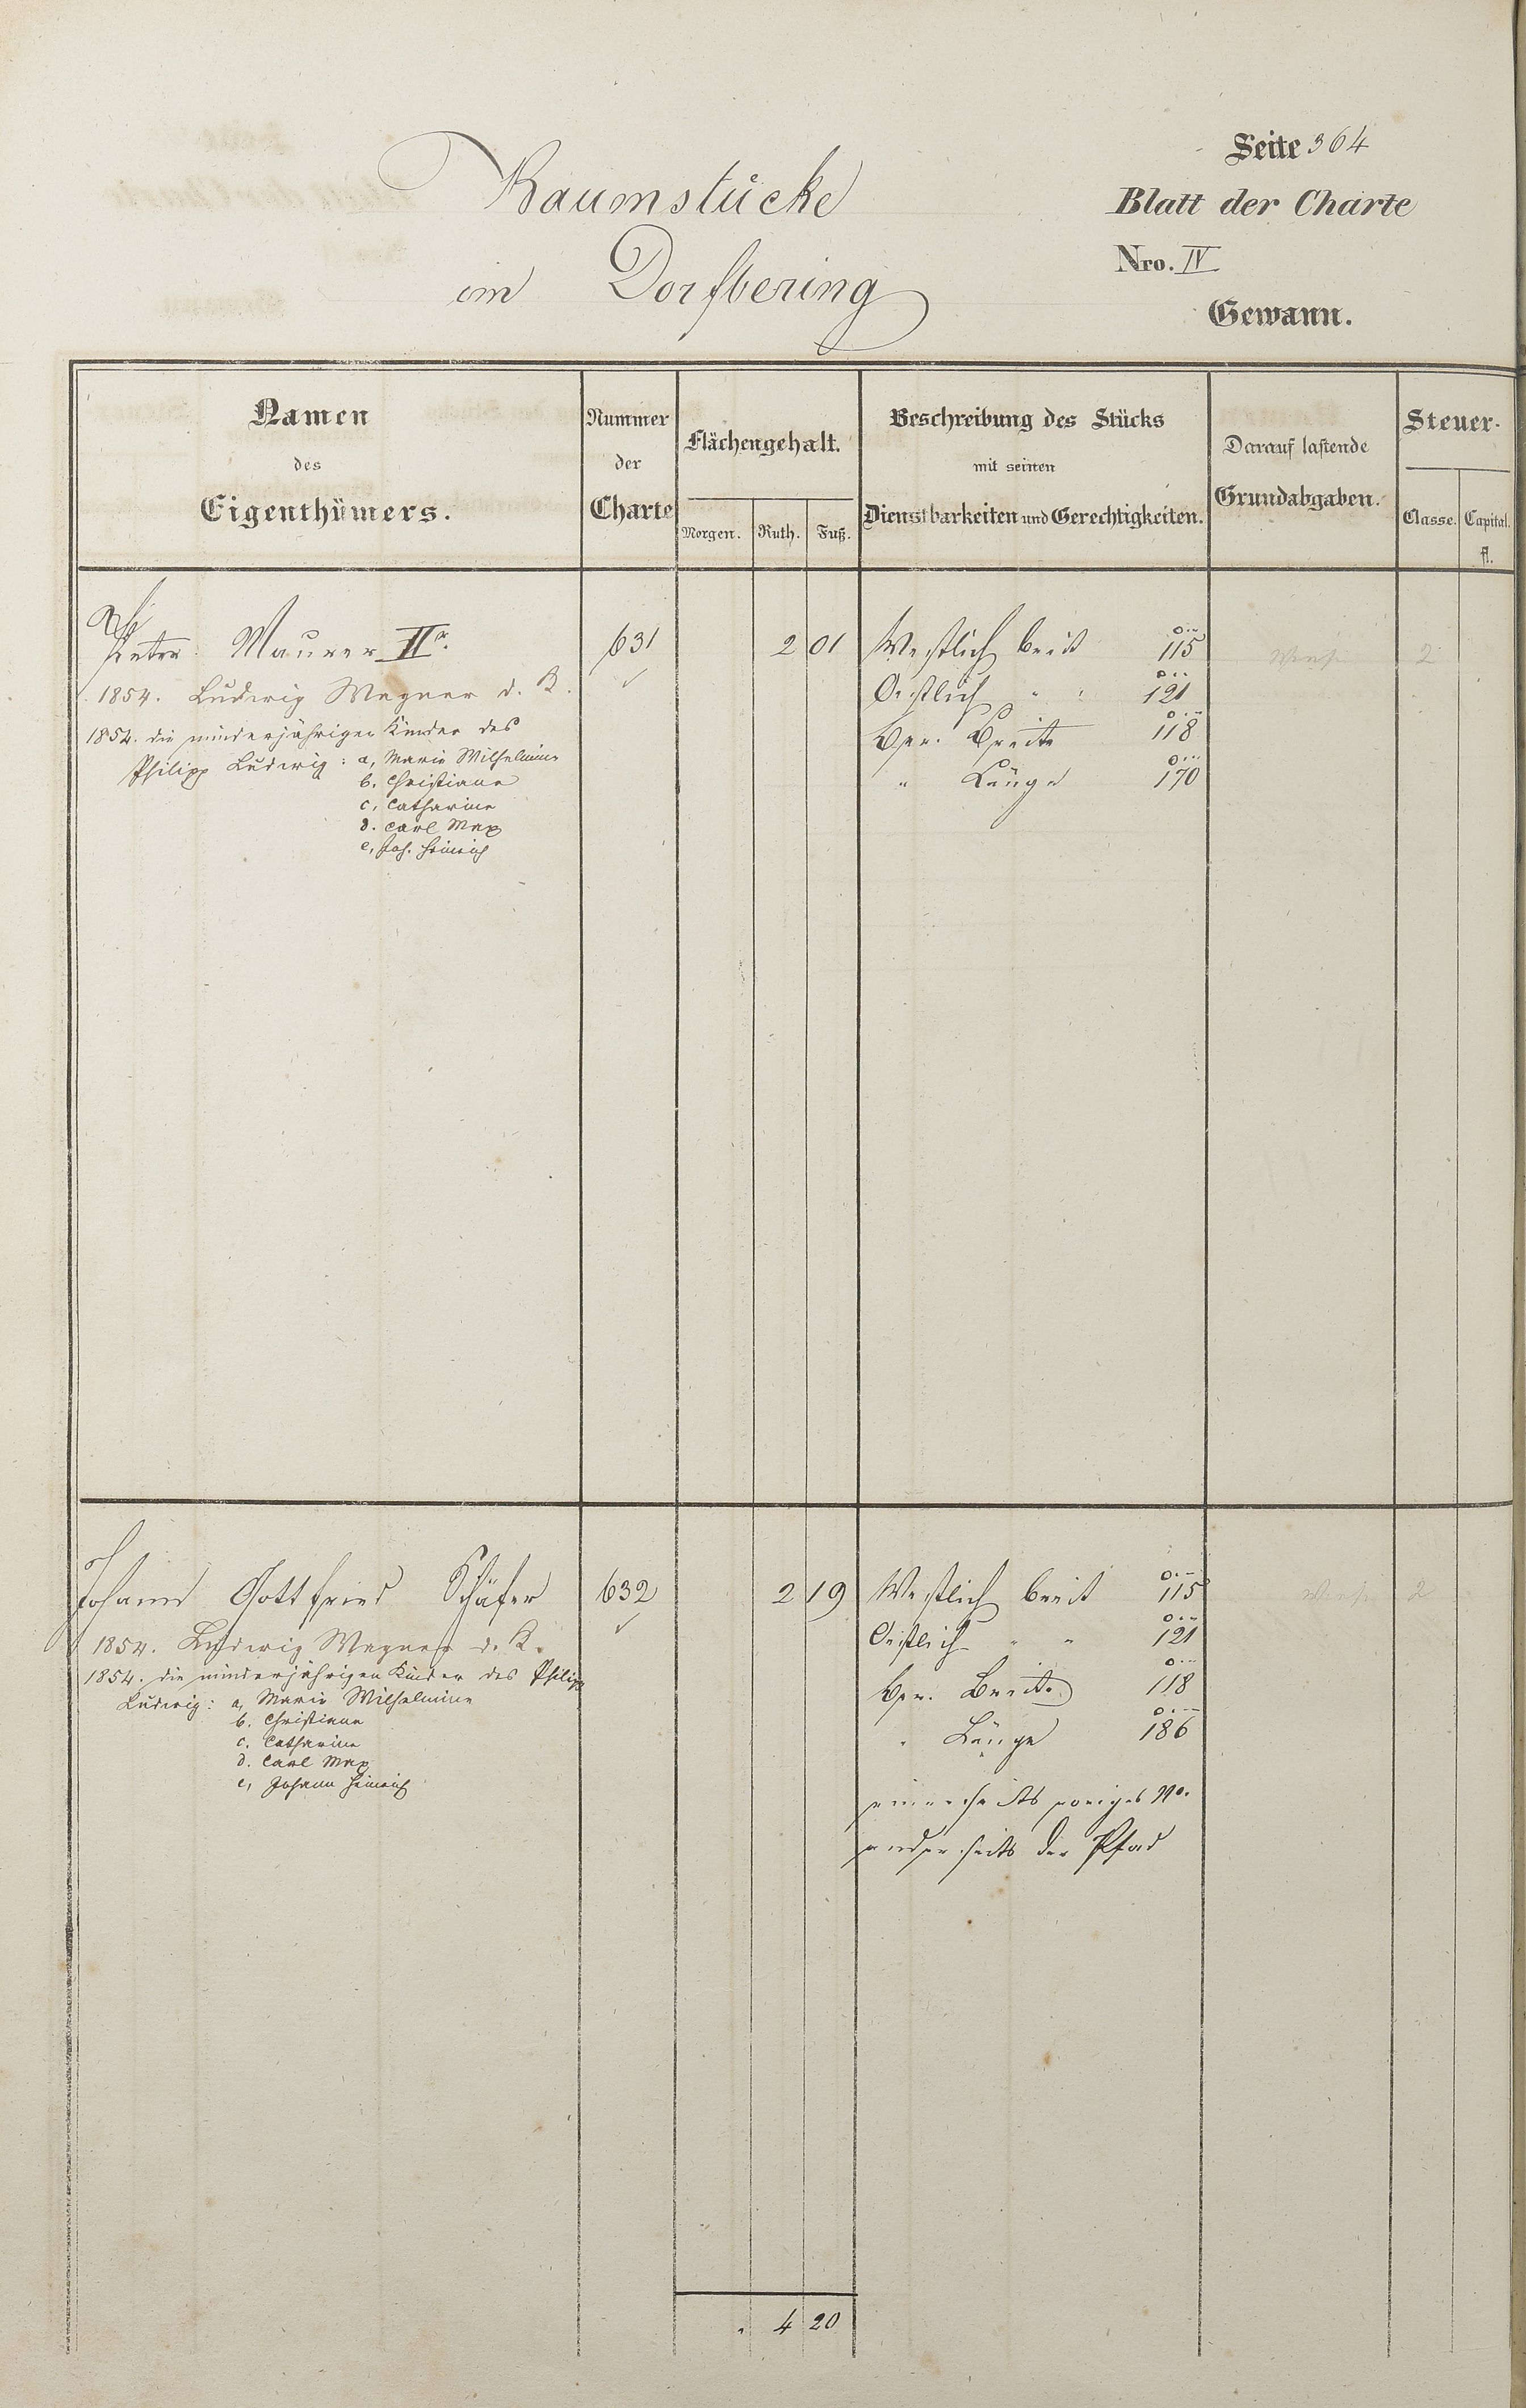 Seite 364
Baumstücke
Blatt der Charte
im Dorfbering
Nro. IV
Gewann.
Namen
des
Eigenthümers.
Nummer
der
Charte
Flächengehalt.
Morgen. Ruth. Fuß.
Beschreibung des Stücks
mit seinen
Dienstbarkeiten und Gerechtigkeiten.
Darauf lastende
Grundabgaben.
Steuer-
Classe. Capital.
fl.
Peter Maurer IIr. 631 2 01 Westlich breit 115 Wiese 2
1854. Ludwig Wagner d. B. Oestlich " " 121
1854. die minderjährigen Kinder des Ber. Breite 118
Philipp Ludwig: a, Marie Wilhelmine " Länge 170
b. Christiane
c, Catharine
d. Carl Max
e, Joh. Heinrich
Johann Gottfried Schäfer 632 2 19 Westlich breit 115 Wiese 2
1854. Ludwig Wagner d. B. Oestlich " " 121
1854. die minderjährigen Kinder des Philipp Ber. Breite 118
Ludwig: a, Marie Wilhelmine
b. Christiane " Länge 186
c. Catharine
d. Carl Max
e, Johann Heinrich
einerseits voriges No.
anderseits der Pfad
" 4 20